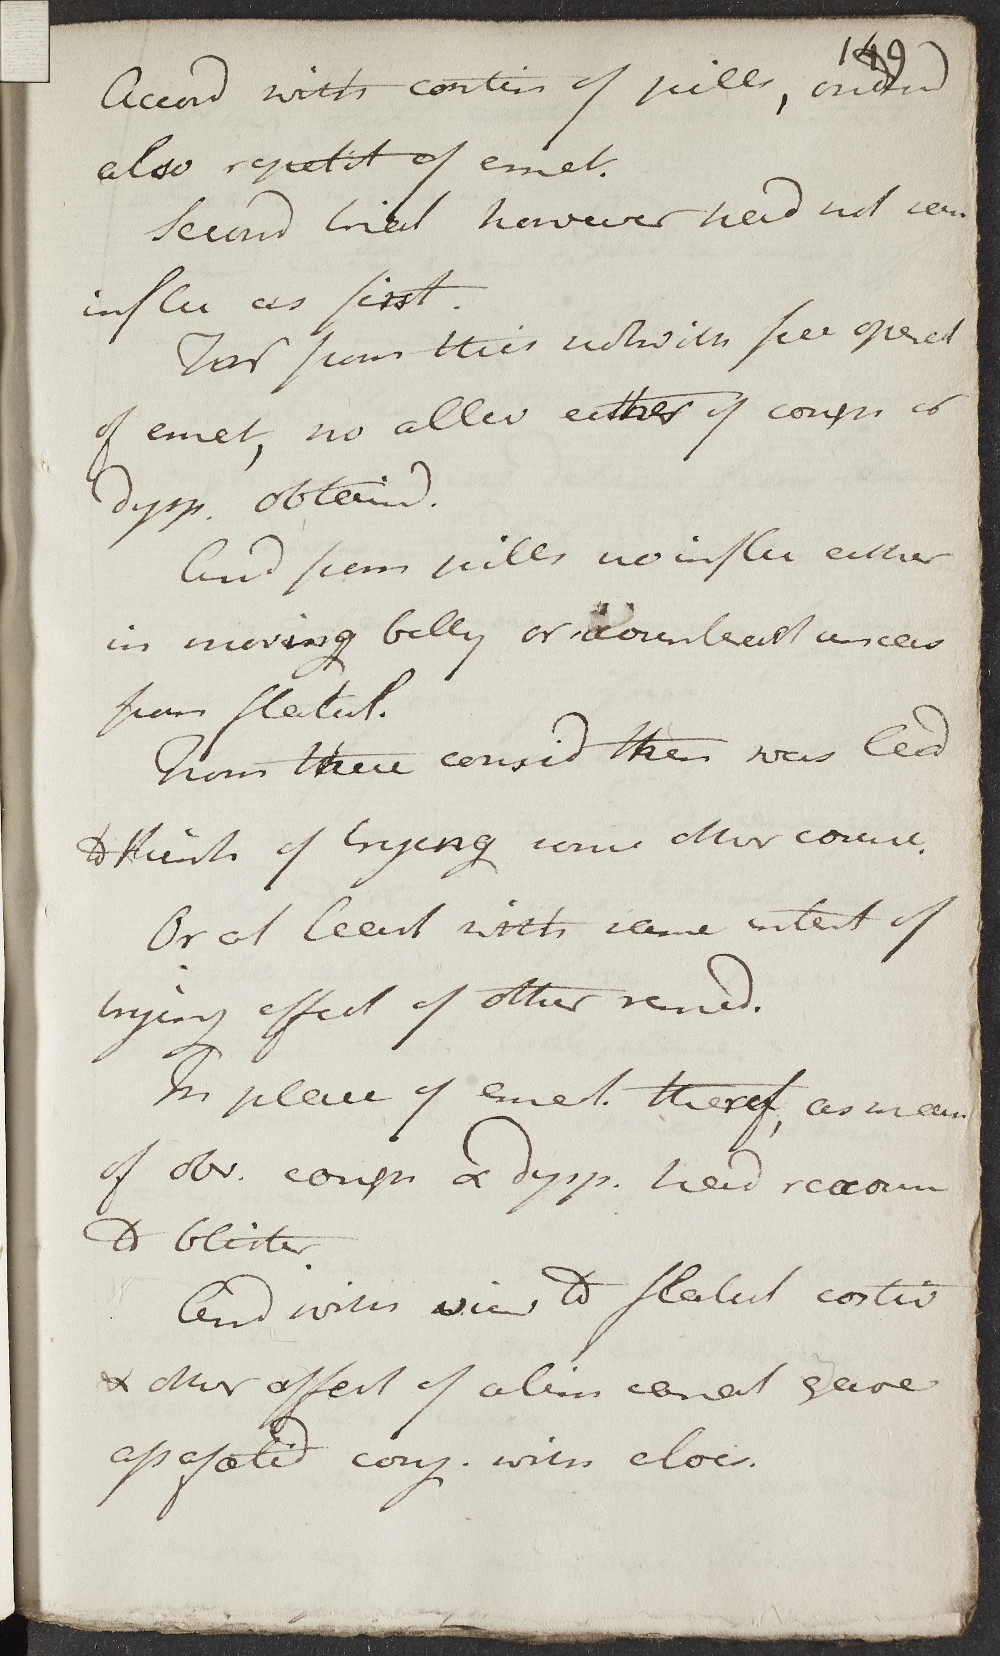 149
Accord with contin of pills, orderd
also repetit of emet.
Second trial however had not sam
influ as first.
For from this notwith free operat
of emet, no allev either of cough or
dysp. obtaind.
And from pills no influ either
in moving belly or unceas
from flatul.
From these consid then was led
to think of trying some other course.
Or at least with same intent of
trying effect of other remed.
In place of emet. theref, as mean
of obv. cough & dysp. had recours
to blister.
And with view to flatul costiv
& other affect of alim canal gave
assafoetid conj. with aloes.